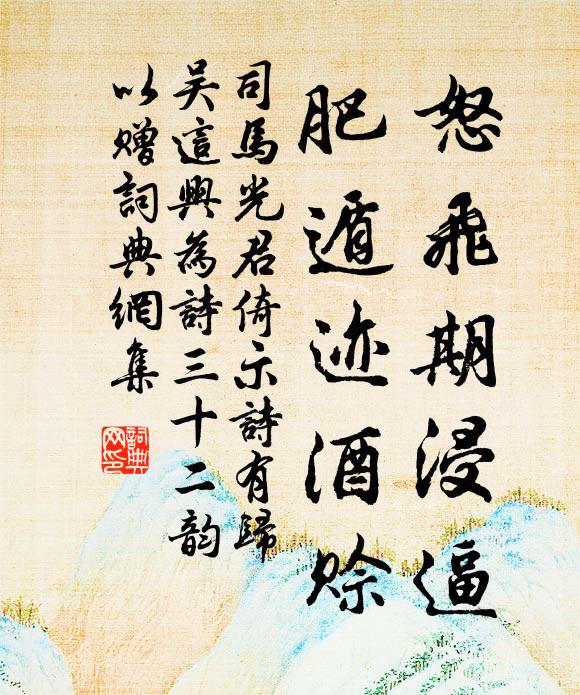 怒飛期浸逼
肥遁迹酒賒
司馬光君倚示詩有歸
吴這興為詩三十二韵
以贈詞典網集
詞典網印